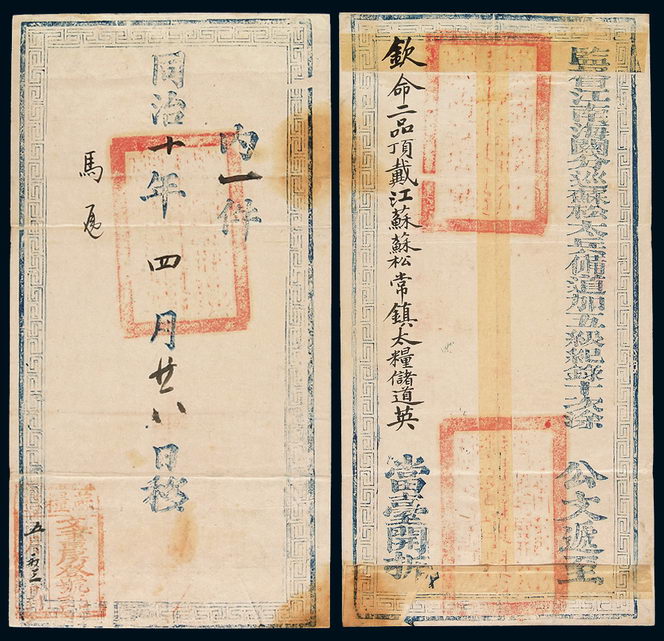 監督江南海關分巡蘇松太兵備道加五級紀錄十次涂 公文遞至
欽命二品頂戴江蘇蘇松常鎮太糧儲道英 當臺開拆
內一件
同治十年四月廿八日移
馬
五 初三